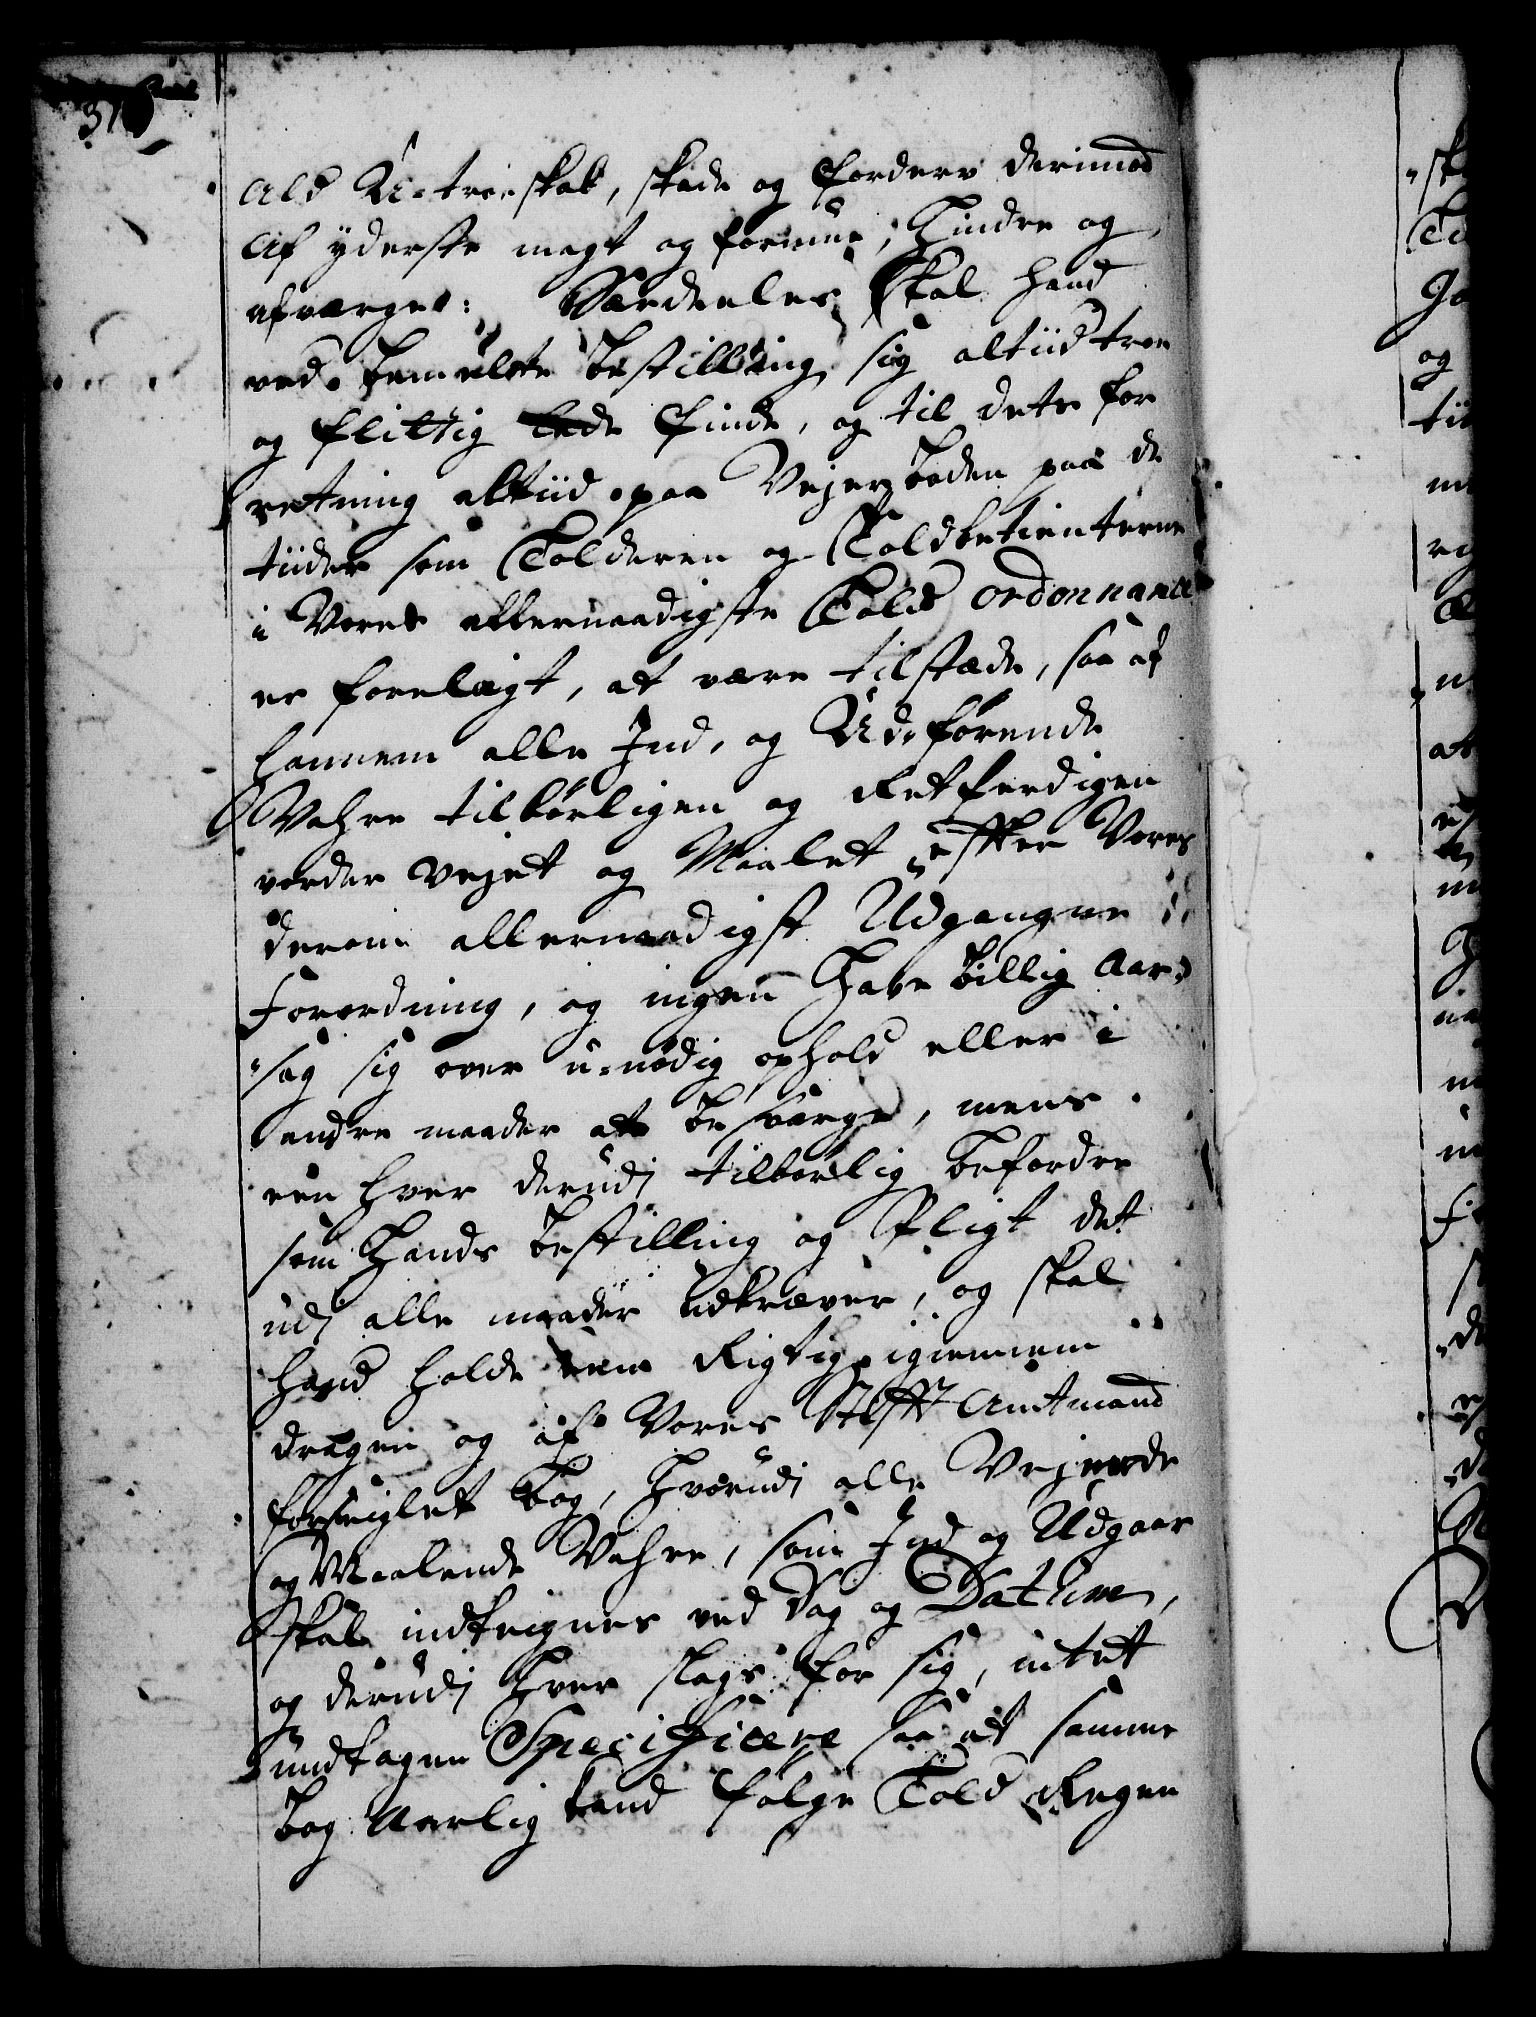 Ald U-troeskab, skade og forderv derimod
Af yderste magt og formue, Hindre og
afværge: Særdeeles skal hand
ved bemelte bestilling sig altiid troe
og flittig lade finde, og til dets for
retning altiid paa Vejerboden paa de
tiider som Tolderen og Toldbetienterne
i Vores allernaadigste Told ordonnance
er forelagt, at være tilstæde, saa af
hannem alle Ind, og Ud-førende
Vahre tilbørligen og Retferdigen
vorder Vejet og Maalet, effter Vores
derom allernaadigst Udgangne
Forordning, og ingen Have billig Aar-
sag sig over u-nødig ophold eller i
andre maader at besværge, mens
een hver derudj tilbørlig befordre
som Hands bestilling og Pligt det
udj alle maader udkræver, og skal
hand holde een Rigtig igiennem
dragen og af Vores Stifft Amtmand
forseiglet bog, Hvorudj alle Vejende
og Maalende Vahre, som Ind og Udgaar
skal indteignes ved dag og Datum,
og derudj Hver slags for sig, intet
undtagen Specificere saa at samme
bog Aarlig kand følge Told Regen